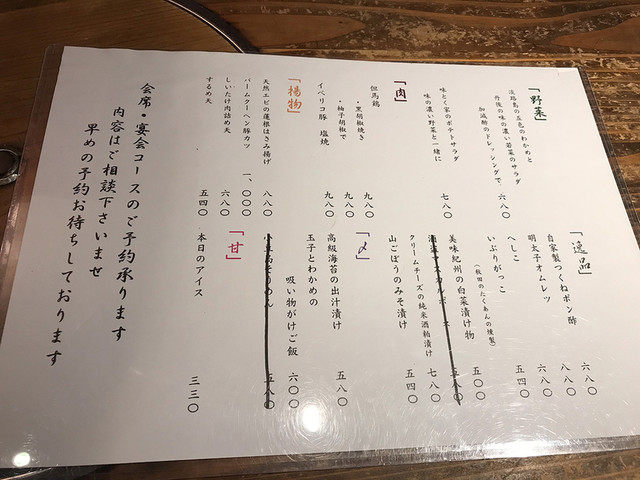 「野菜」
淡路島の五色のわかめと
丹後の味の濃い若菜のサラダ
加減酢のドレッシングで 六八〇
味とく家のポテトサラダ
味の濃い野菜と一緒に 七八〇
「肉」
但馬鶏
・黒胡椒焼き 九八〇
・柚子胡椒で 九八〇
イベリコ豚 塩焼 九八〇
「揚物」
天然エビの蓮根はさみ揚げ 八八〇
バームクーヘン豚カツ 一、〇〇〇
しいたけ肉詰め天 六八〇
するめ天 五四〇
「逸品」
自家製つくねポン酢 六八〇
明太子オムレツ 八八〇
へしこ 六八〇
いぶりがっこ 五四〇
（秋田のたくあんの燻製）
美味紀州の白菜漬け物 五〇〇
五八〇
クリームチーズの純米酒粕漬け 七八〇
山ごぼうのみそ漬け 五四〇
「〆」
高級海苔の出汁漬け 五八〇
玉子とわかめの
吸い物がけご飯 六〇〇
そうめん 五八〇
「甘」
本日のアイス 三三〇
会席・宴会コースのご予約承ります
内容はご相談下さいませ
早めの予約お待ちしております